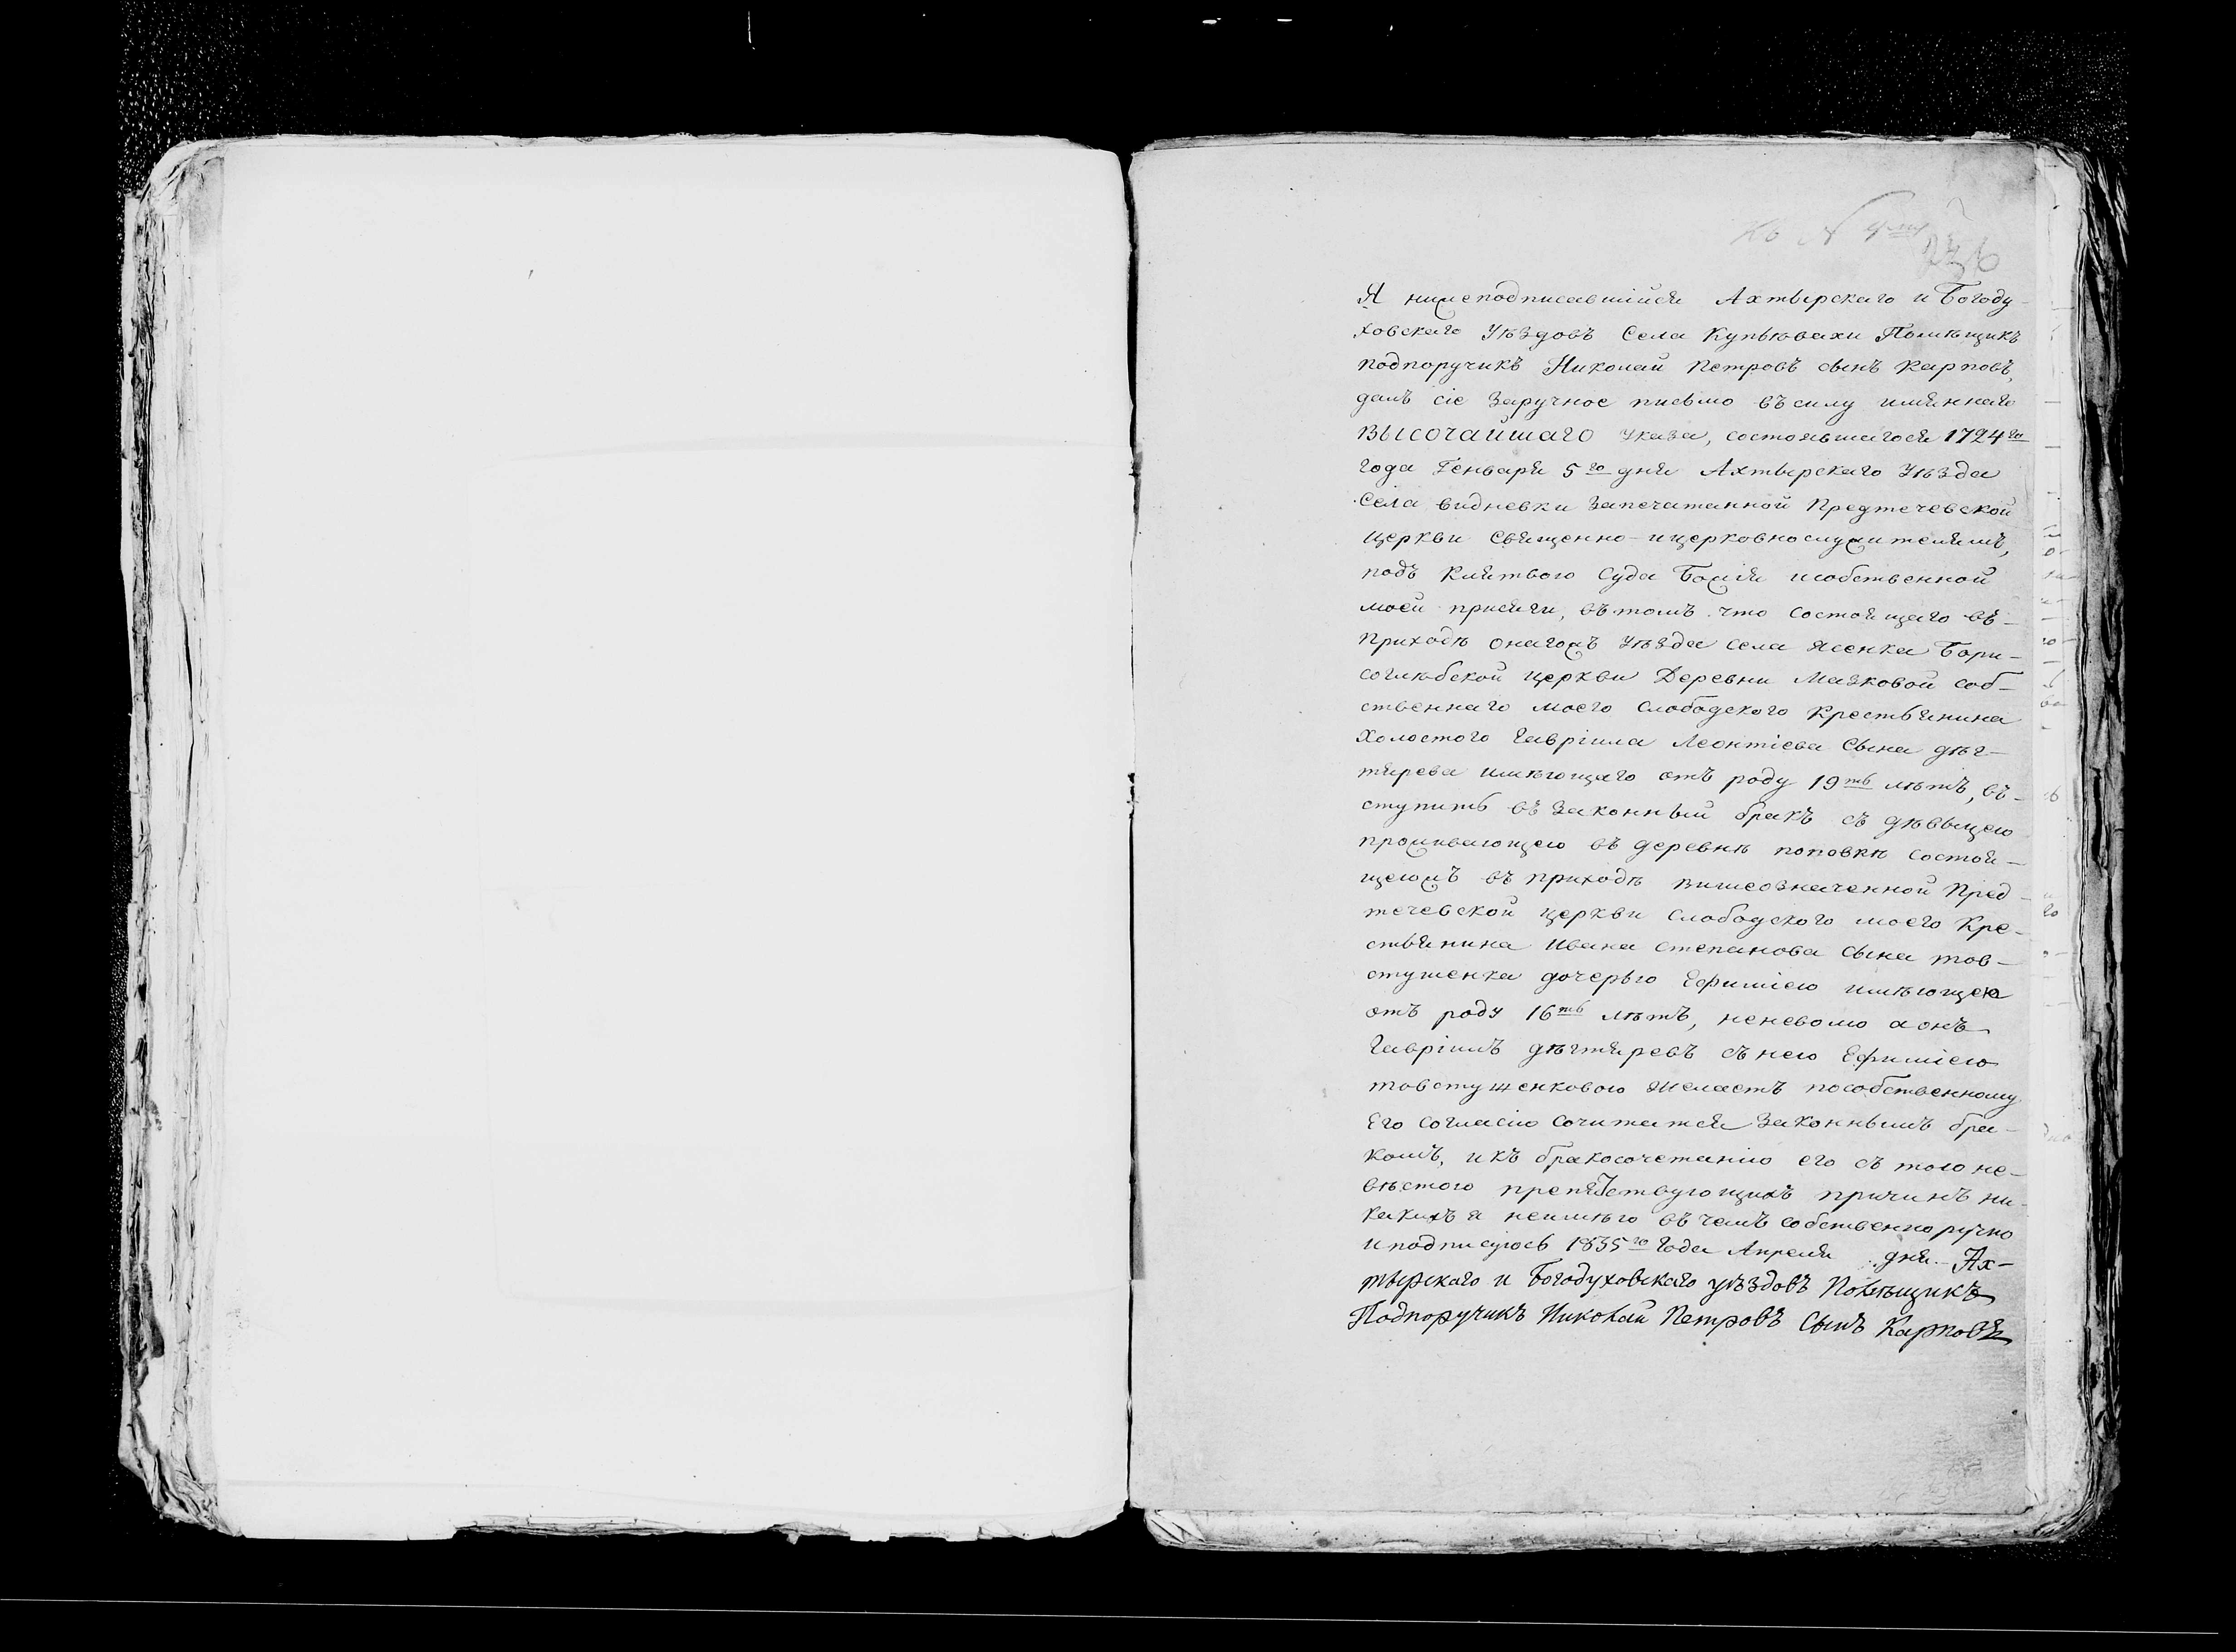 236
Я нижеподписавшійся Ахтырскаго и Богоду-
ховскаго Уѣздовъ Села Купьѣвахи Помѣщикъ
подпоручикъ Николай Петровъ сынъ Карповъ,
далъ сіе Заручное письмо въ силу имяннаго
ВЫСОЧАЙШАГО указа, состоявшагося 1724го
года Генваря 5го дня Ахтырскаго Уѣзда
Села видневки Запечатанной Предтечевской
церкви Священно-и церковнослужителямъ,
подъ Клятвою Суда Божія и собственной
моей присяги, въ томъ что состоящаго въ-
приходѣ онагожъ Уѣзда села Ясенка Бори-
соглѣбской церкви Деревни Мазковой соб-
ственнаго моего Слободского Крестьянина
Холостого Гавріила Леонтіева Сына дѣг-
тярева имѣющаго отъ роду 19ть лѣтъ, въ-
ступить въ Законный бракъ съ дѣвыцею
проживающею въ деревнѣ поповкѣ состоя-
щеюжъ въ приходѣ вишеозначенной Пред-
течевской церкви слободского моего Кре-
стьянина Ивана степанова сына тов-
стушенка дочерью Ефиміею имѣющею
отъ роду 16ть лѣтъ, неневолю а онъ
Гавріилъ дѣгтяревъ съ нею Ефиміею
товстушенковою желаетъ пособственному
Его согласію сочитатся Законнымъ бра-
комъ, и къ бракосочетанію его съ тою не-
вѣстою препятствующихъ причинъ ни-
какихъ я неимѣю въ чемъ собственноручно
и подписуюсь 1835го Года Апреля дня. Ах-
тырскаго и Богодуховскаго уѣздовъ Помѣщикъ
Подпоручикъ Николай Петровъ Сынъ Карповъ